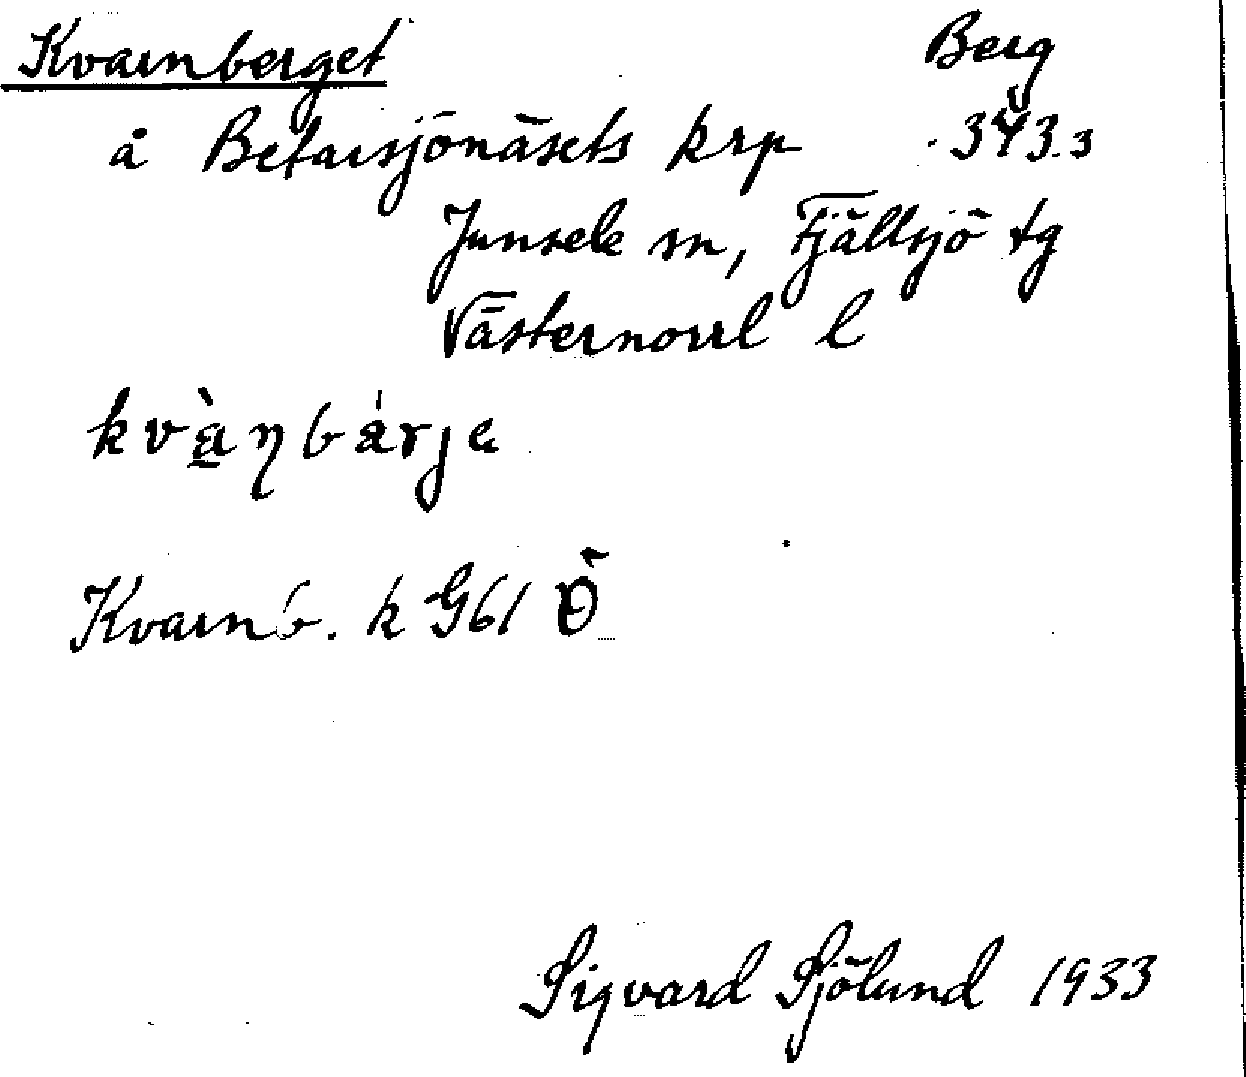 Kvarnberget Berg
å Betarsjönäsets krp 343.3
Junsele sn, Fjällsjö tg
Västernorrl l
Kvarnb. k G61 Ö
Sigvard Sjölund 1933